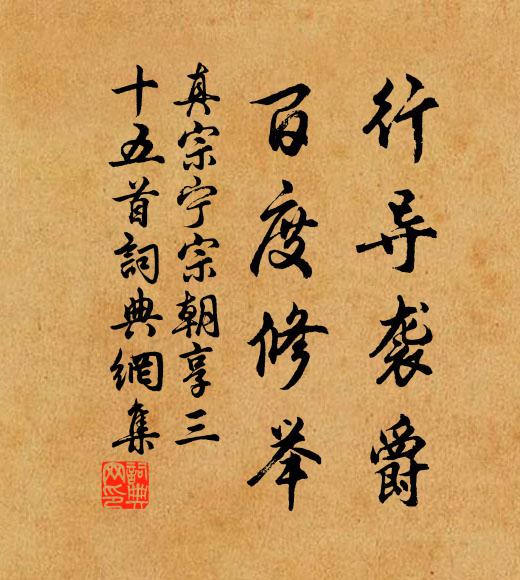 行导袭爵
百度修举
真宗宁宗朝享三
十五首詞典網集
詞典
网印